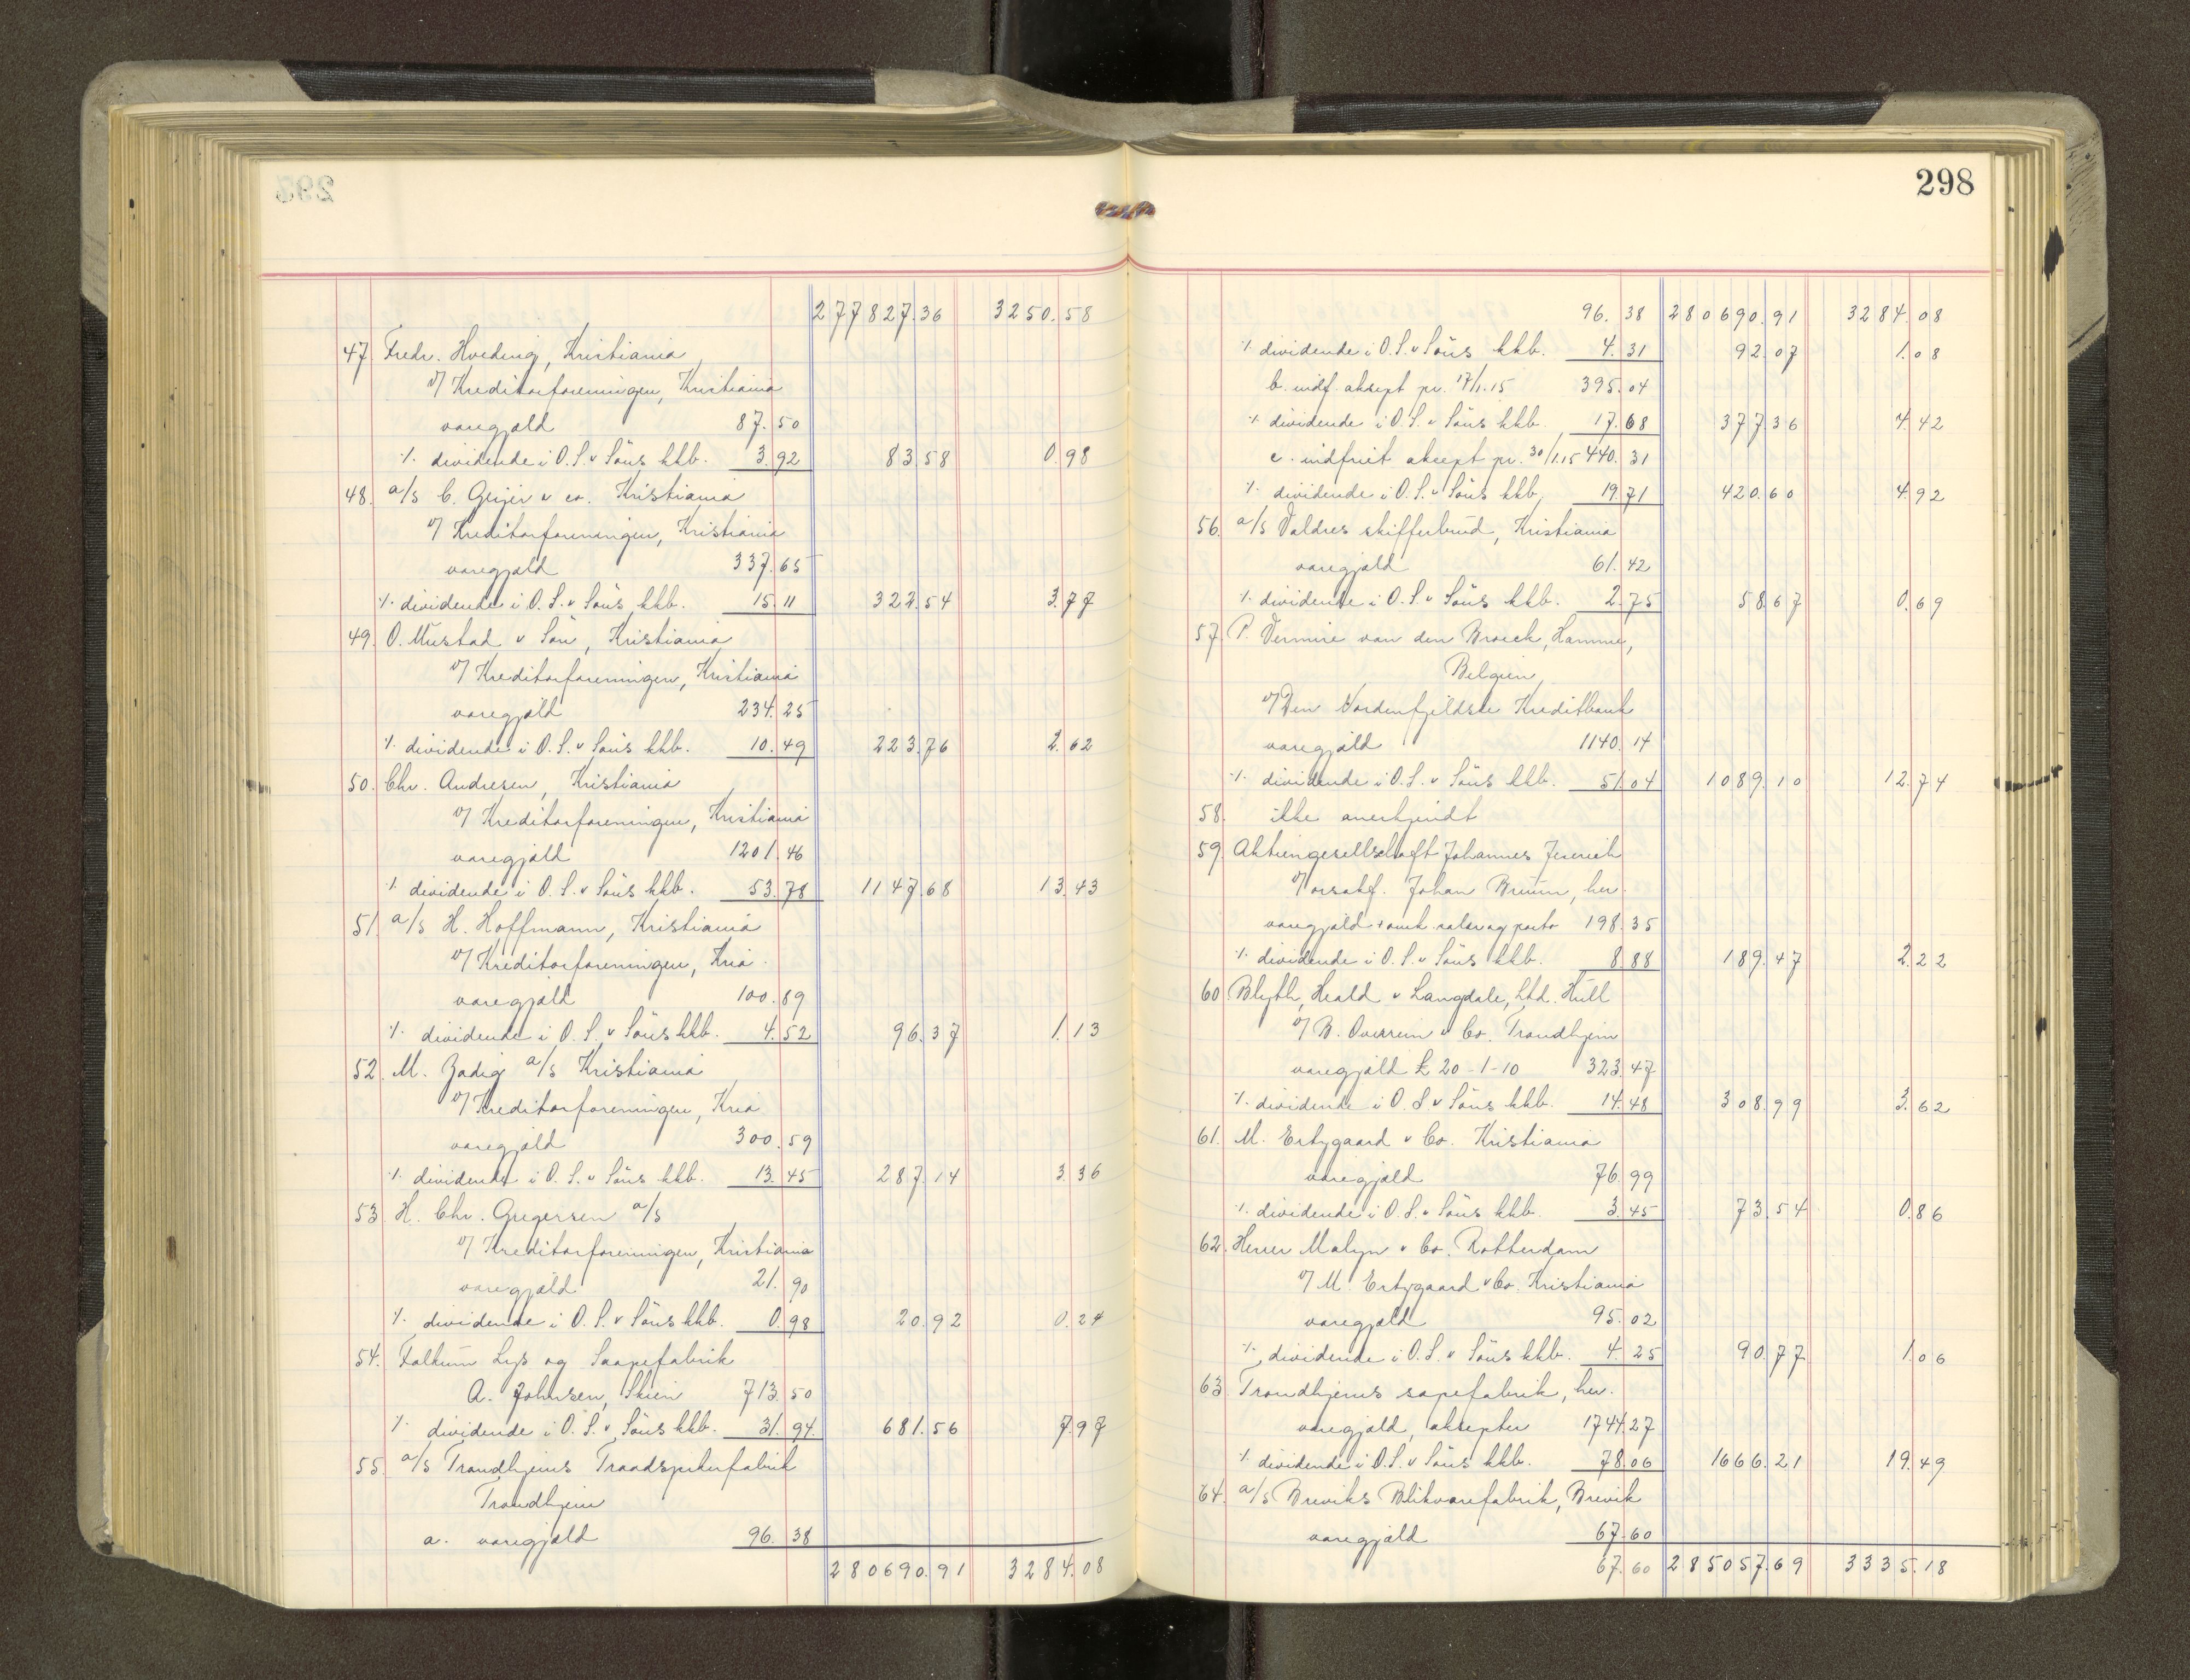 277827.36 3250.58
47. Fredr. Hveding, Kristiania
v/ Kreditorforeningen, Kristiania
varegjæld 87.50
./. dividende i O. S. & Søns kkb. 3.92 83.58 0.98
48. a/s C. Geijer & co. Kristiania
v/ Kreditorforeningen, Kristiania
varegjæld 337.65
./. dividende i O. S. & Søns kkb. 15.11 322.54 3.77
49. O. Mustad & Søn, Kristiania
v/ Kreditorforeningen, Kristiania
varegjæld 234.25
./. dividende i O. S. & Søns kkb. 10.49 223.76 2.62
50. Chr. Andresen, Kristiania
v/ Kreditorforeningen, Kristiania
varegjæld 1201.46
./. dividende i O. S. & Søns kkb. 53.78 1147.68 13.43
51. a/s H. Hoffmann, Kristiania
v/ Kreditorforeningen, Kria.
varegjæld 100.89
./. dividende i O. S. & Søns kkb. 4.52 96.37 1.13
52. M. Zadig a/s Kristiania
v/ Kreditorforeningen, Kria
varegjæld 300.59
./. dividende i O. S. & Søns kkb. 13.45 287.14 3.36
53. H. Chr. Gregersen a/s
v/ Kreditorforeningen, Kristiania
varegjæld 21.90
./. dividende i O. S. & Søns kkb. 0.98 20.92 0.24
54. Falkum Lys og Saapefabrik
A. Johnsen, Skien 713.50
./. dividende i O. S. & Søns kkb. 31.94 681.56 7.97
55. a/s Trondhjems Traadspikerfabrik
Trondhjem
a. varegjæld 96.38
280690.91 3284.08
298
96.38 280690.91 3284.08
./. dividende i O. S. & Søns kkb. 4.31 92.07 1.08
b. indf. aksept pr. 17/1.15 395.04
./. dividende i O. S. & Søns kkb. 17.68 377.36 4.42
c. indfriet aksept pr. 30/1.15 440.31
./. dividende i O. S. & Søns kkb. 19.71 420.60 4.92
56. a/s Valdres skifferbrud, Kristiania
varegjæld 61.42
./. dividende i O. S. & Søns kkb. 2.75 58.67 0.69
57. P. Vermire van den Broeck, Hamme,
Belgien
v/ Den Nordenfjeldske Kreditbank
varegjæld 1140.14
./. dividende i O. S. & Søns kkb. 51.04 1089.10 12.74
58. ikke anerkjendt
59. Aktiengesellschaft Johannes Jeserich
v/ orsakf. Johan Bruun, her.
varegjæld + omk. salær og porto 198.35
./. dividende i O. S. & Søns kkb. 8.88 189.47 2.22
60. Blyth, Heald & Langdale, Ltd. Hull
v/ B. Overrein & Co. Trondhjem
varegjæld £ 20-1-10 323.47
./. dividende i O. S. & Søns kkb. 14.48 308.99 3.62
61. M. Ertzgaard & Co. Kristiania
varegjæld 76.99
./. dividende i O. S. & Søns kkb. 3.45 73.54 0.86
62. Herrer Malyn & Co. Rotterdam
v/ M. Ertzgaard & Co. Kristiania
varegjæld 95.02
./. dividende i O. S. & Søns kkb. 4.25 90.77 1.06
63. Trondhjems sapefabrik, her.
varegjæld, aksepter 1744.27
./. dividende i O. S. & Søns kkb. 78.06 1666.21 19.49
64. a/s Breviks Blikvarefabrik, Brevik
varegjæld 67.60
67.60 285057.69 3335.18